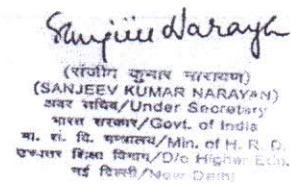 Sanjeev Narayan
(संजीव कुमार नारायण)
(SANJEEV KUMAR NARAYAN)
अवर सचिव/Under Secretary
भारत सरकार/Govt. of India
मा. सं. वि. मन्त्रालय/Min. of H. R. D.
उच्चतर शिक्षा विभाग/D/o Higher Edn.
नई दिल्ली/New Delhi